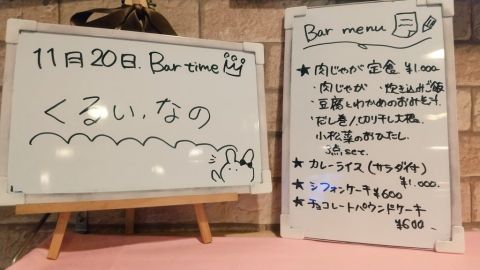 11月20日. Bar time
くるい、なの
Bar menu
★ 肉じゃが定食 ¥1.000
・肉じゃが ・炊き込みご飯
・豆腐とわかめのおみそ汁
・だし巻/切り干し大根
小松菜のおひたし
3点set.
★ カレーライス(サラダ付)
¥1.000.
★ シフォンケーキ ¥600
★ チョコレートパウンドケーキ
¥600.